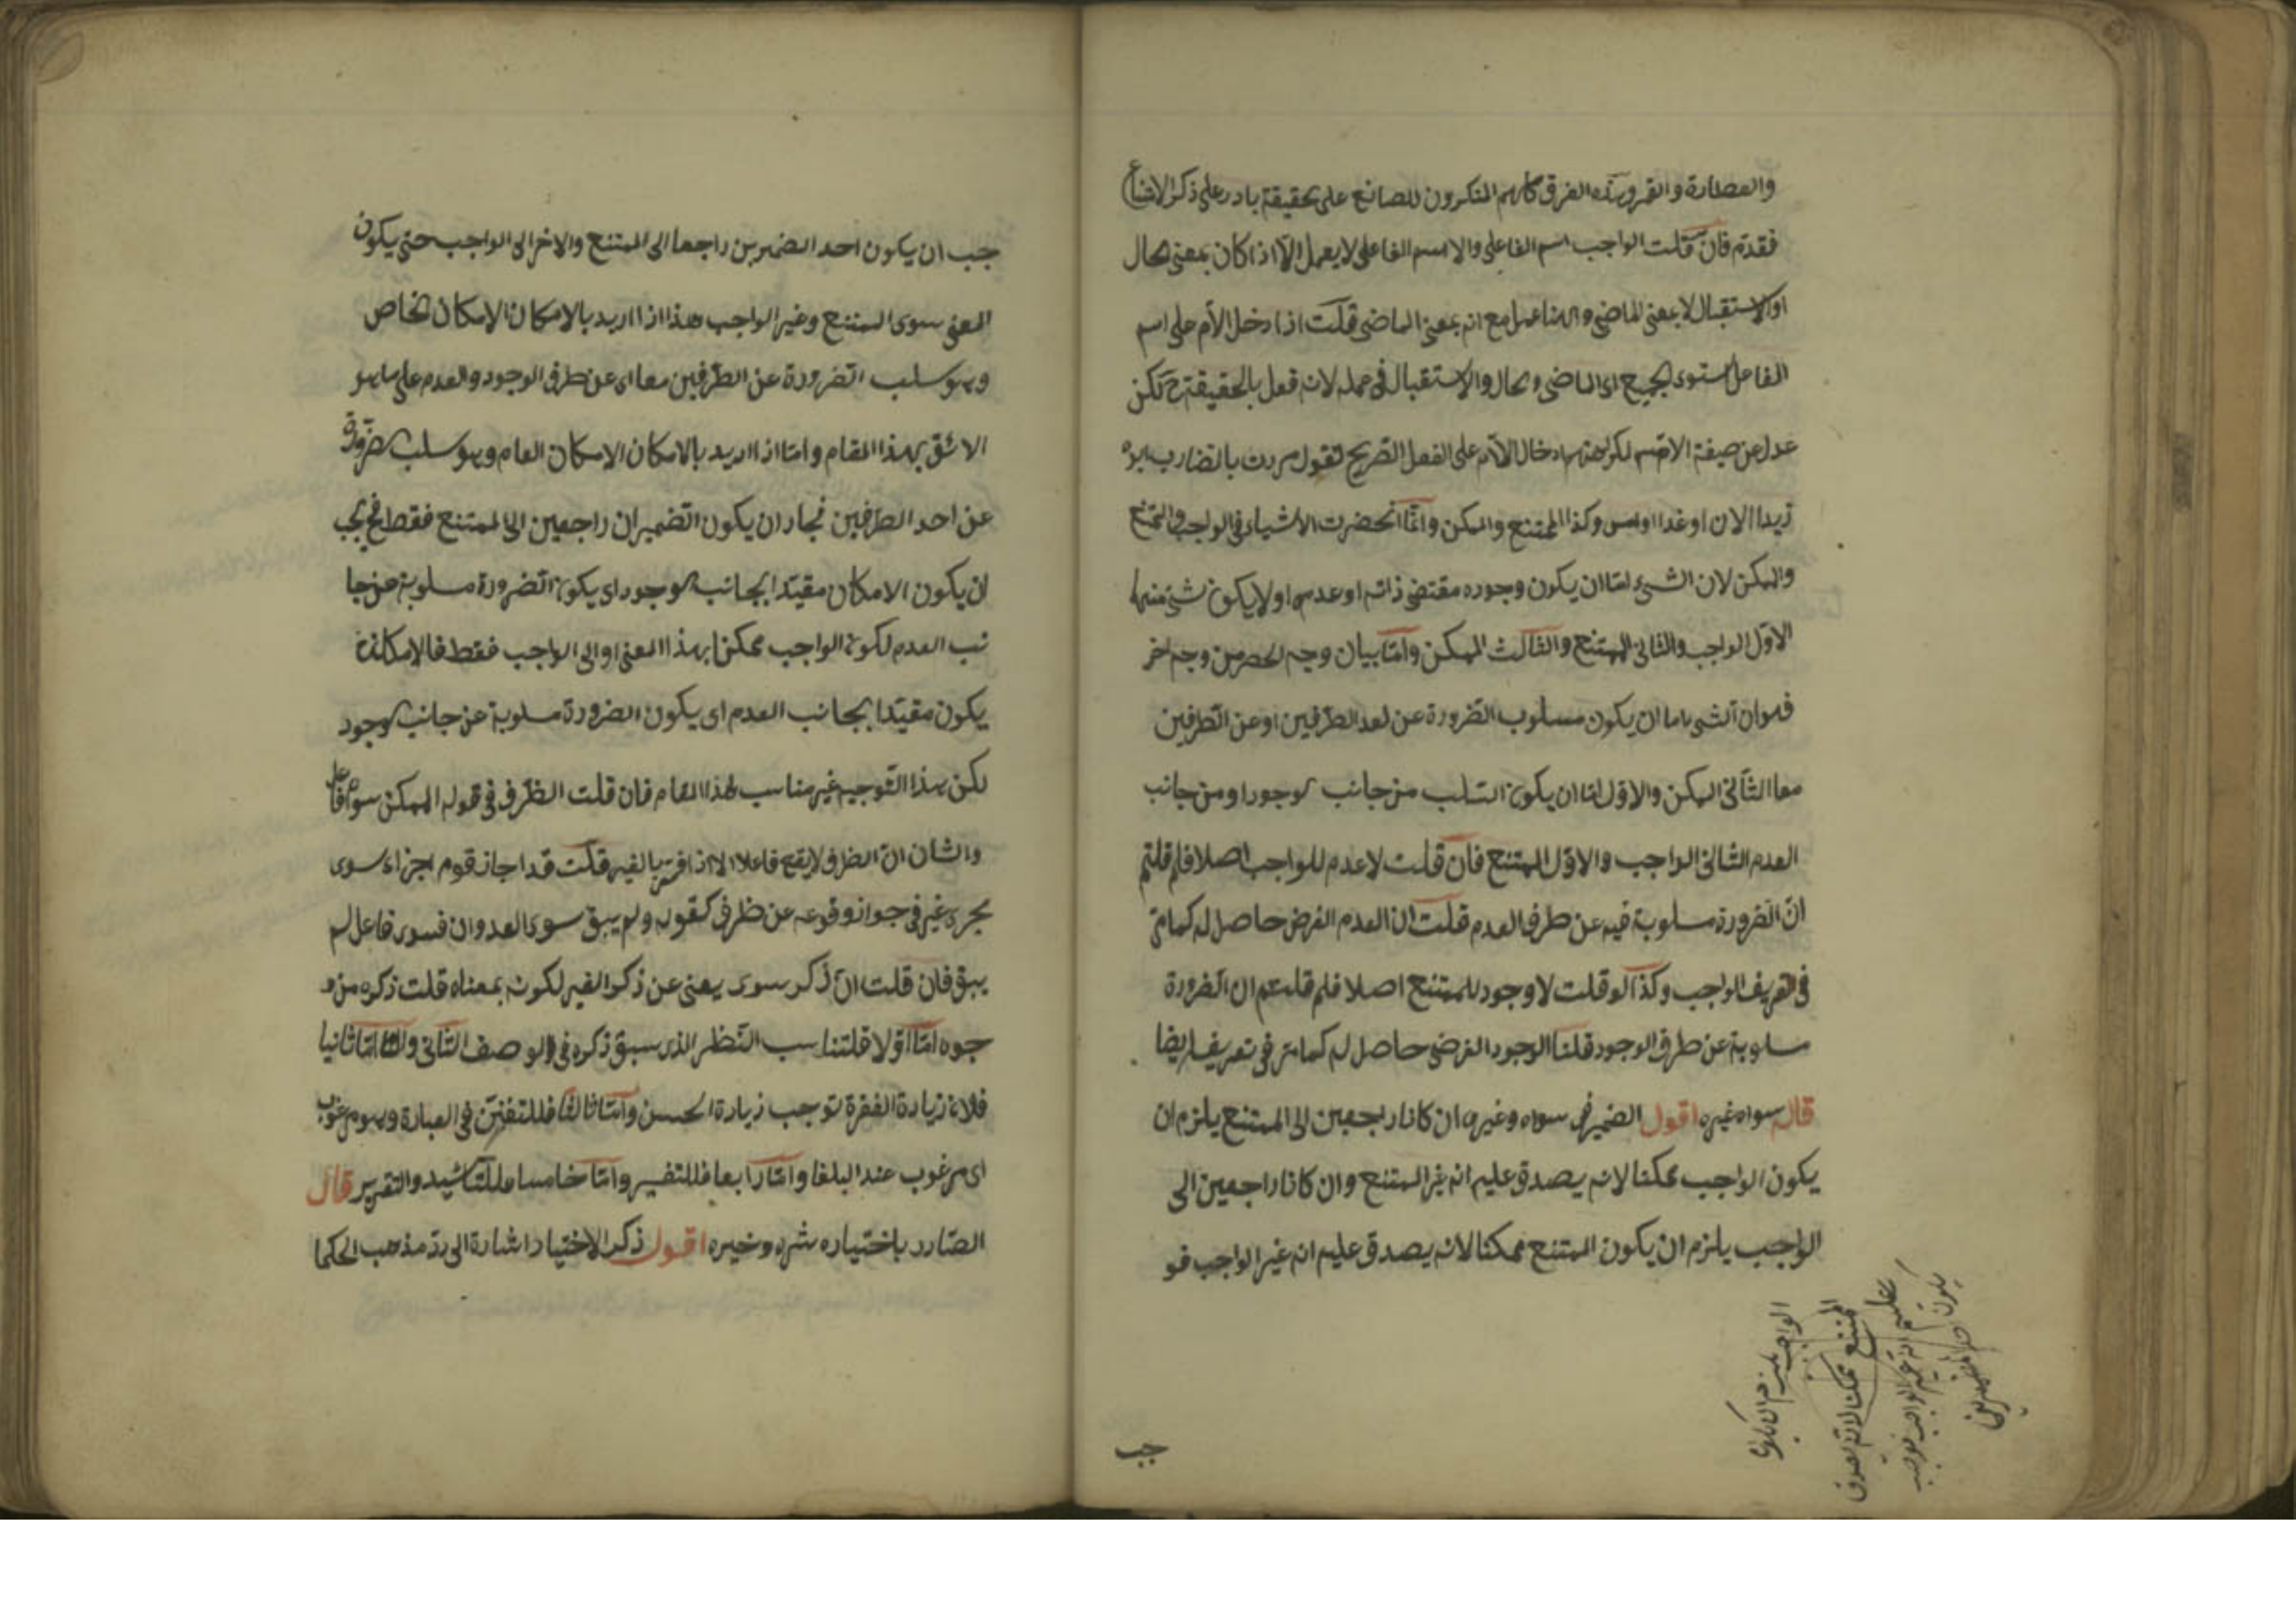 والعطارة والقمر وهذه الفرق كلهم المنكرون للصانع على حقيقة بادر على ذكر الامتناع
فقدم فان قلت الواجب اسم الفاعل والاسم الفاعل لا يعمل الا اذا كان بمعنى الحال
او الاستقبال لا بمعنى الماضى وههنا عمل مع انه بمعنى الماضى قلت اذا دخل اللام على اسم
الفاعل استوى الجميع اى الماضى والحال والاستقبال فى عمله لانه فعل بالحقيقة ح لكن
عدل عن صيغة الاسم لكراهتهم ادخال اللام على الفعل الصريح لتقول مررت بالضارب ابوه
زيدا الان او غدا او امس وكذا الممتنع والممكن وانما انحضرت الاشياء فى الواجب والممتنع
والممكن لان الشئ اما ان يكون وجوده مقتضى ذاته او عدمه او لا يكون شئ منهما
الاول الواجب والثانى الممتنع والثالث الممكن واما بيان وجه الحصر من وجه اخر
فهو ان الشئ اما ان يكون مسلوب الضرورة عن احد الطرفين او عن الطرفين
معا الثانى الممكن والاول اما ان يكون السلب من جانب الوجود او من جانب
العدم الثانى الواجب والاول الممتنع فان قلت لا عدم للواجب اصلا فلم قلتم
ان الضرورة مسلوبة فيه عن طرف العدم قلت ان العدم الفرض حاصل له كما مر
فى تعريف الواجب وكذا لو قلت لا وجود للممتنع اصلا فلم قلتم ان الضرورة
مسلوبة عن طرف الوجود قلنا الوجود الفرضى حاصل له كما مر فى تعريفه ايضا
قال سواه غيره اقول الضمير فى سواه وغيره ان كانا راجعين الى الممتنع يلزم ان
يكون الواجب ممكنا لانه يصدق عليه انه غير الممتنع وان كانا راجعين الى
الواجب يلزم ان يكون الممتنع ممكنا لانه يصدق عليه انه غير الواجب فو
الواجب يلزم ان يكون
الممتنع ممكنا لانه يصدق
عليه انه غير الواجب فوجب
يكون
جب
جب ان يكون احد الضميرين راجعا الى الممتنع والاخر الى الواجب حتى يكون
المعنى سوى الممتنع وغير الواجب هذا اذا اريد بالامكان الامكان الخاص
وهو سلب الضرورة عن الطرفين معا اى عن طرفى الوجود والعدم على ما هو
الائق بهذا المقام واما اذا اريد بالامكان الامكان العام وهو سلب الضرورة
عن احد الطرفين فجاز ان يكون الضميران راجعين الى الممتنع فقط فح يجب
ان يكون الامكان مقيدا بجانب الوجود اى يكون الضرورة مسلوبة عن جا
نب العدم لكون الواجب ممكنا بهذا المعنى او الى الواجب فقط فالامكان
يكون مقيدا بجانب العدم اى يكون الضرورة مسلوبة عن جانب الوجود
لكن هذا التوجيه غير مناسب لهذا المقام فان قلت الظرف فى قوله الممكن سواه فاعل
والشان ان الظرف لا يقع فاعلا الا اذا اقترن بالغير قلت قد اجاز قوم اجزاء سوى
مجرى غير فى جواز وقوعه عن ظرف كقوله ولم يبق سوى العدوان فسوى فاعل لم
يبق فان قلت ان ذكر سوى يغنى عن ذكر الغير لكونه بمعناه قلت ذكره من و
جوه اما اولا قلتناسب النظر الذى سبق ذكره فى الوصف الثانى واما ثانيا
فلان زيادة الفقرة توجب زيادة الحسن واما ثالثا فللتفنن فى العبارة وهو مرغوب
اى مرغوب عند البلغا واما رابعا فللتفسير واما خامسا فللتاكيد والتقرير قال
الصادر باختياره شره وخيره اقول ذكر الاختيار اشارة الى رد مذهب الحكما